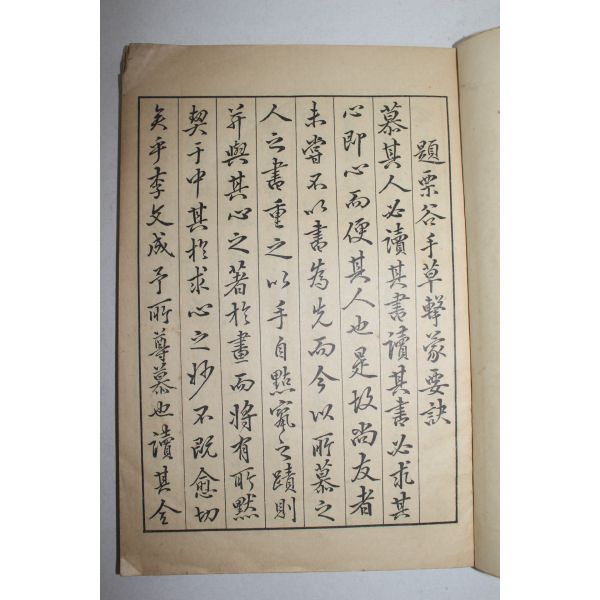 題栗谷手草擊蒙要訣
慕其人必讀其書讀其書必求其
心即心而便其人也是故尚友者
未嘗不以書為先而今以所慕之
人之書重之以手自點竄之蹟則
并與其心之著於畫而將有所默
契于中其於求心之妙不既愈切
矣乎李文成予所尊慕也讀其全